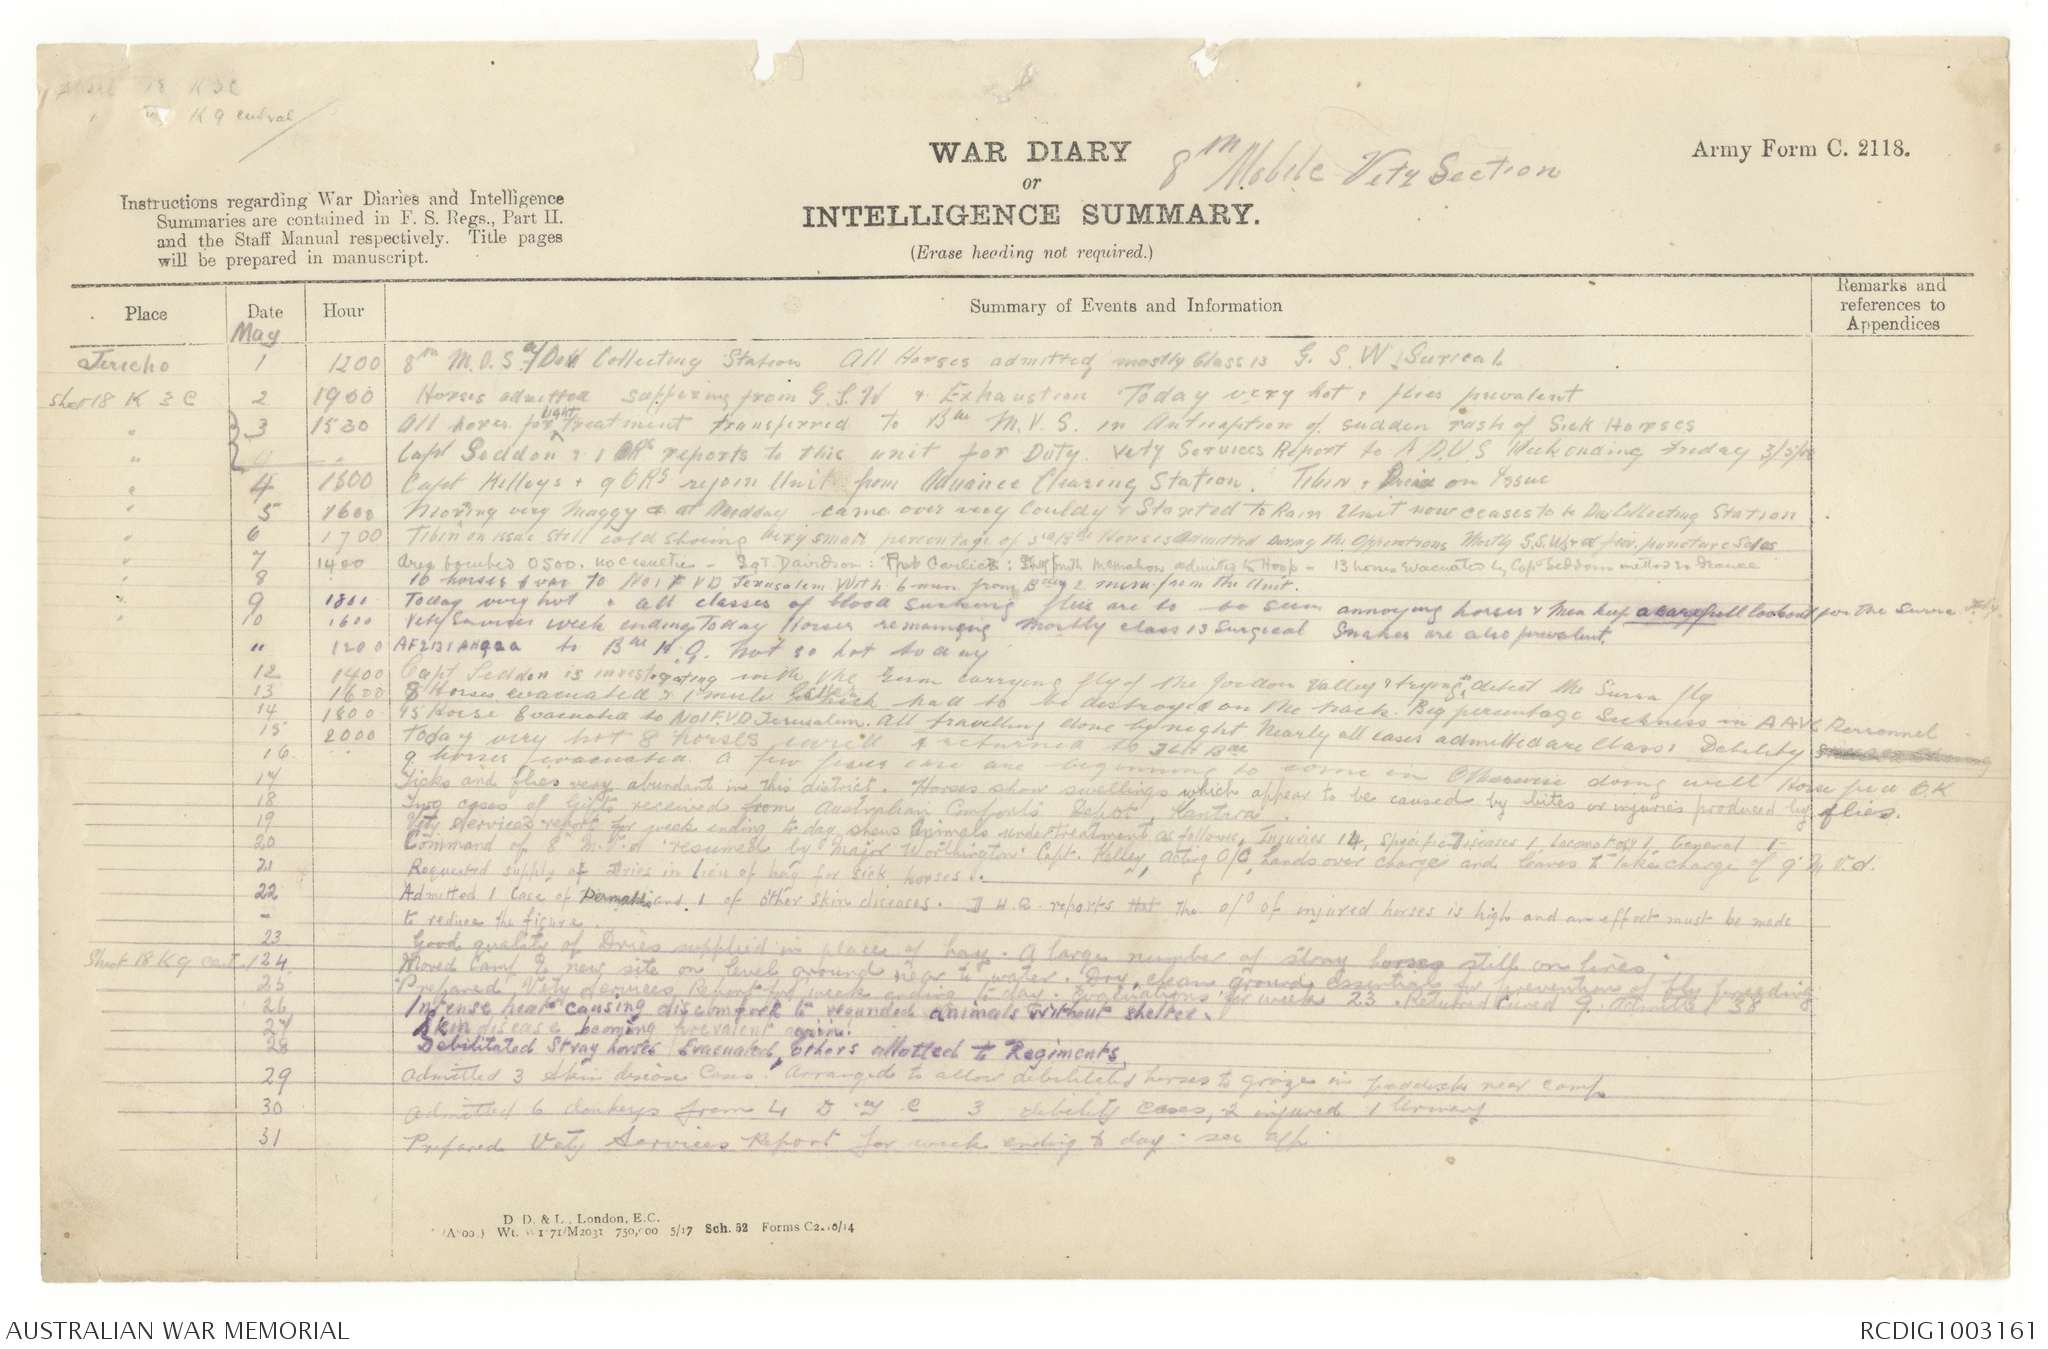 Sheet 18 K 3 C
" " K 9 central
WAR DIARY
or
INTELLIGENCE SUMMARY.
(Erase heading not required.)
8th Mobile Vety Section
Army Form C. 2118.
Instructions regarding War Diaries and Intelligence
Summaries are contained in F. S. Regs., Part II.
and the Staff Manual respectively. Title pages
will be prepared in manuscript.
Place Date Hour Summary of Events and Information Remarks and references to Appendices
May
Jericho 1 1200 8th M.V.S. Collecting Station All Horses admitted mostly Class 13 G. S. W. Surical
Sheet 18 K 3 C 2 1900 Horses admitted suffering from G.S.W & Exhaustion Today very hot & flies prevalent
" 3 1530 All horses for light treatment transferred to M.V.S. in Anticaption of sudden rush of Sick Horses
" Capt Seddon & 1 OR reports to this unit for Duty. Vety Services Report to A.D.V.S Week ending Friday 3/5/18
" 4 1800 Capt Kelleys + 9 ORs rejoin Unit from Advance Clearing Station. Tibin & on Issue
" 5 1600 Morning very Muggy & at Midday came over very Couldy & Started to Rain Unit now ceases to be Div Collecting Station
" 6 1700 Tibin on issue still cold shoeing Very small percentage of Horses Admitted During the Operations Mostly G.S.W. & a few puncture Soles
" 7 1400 Area bombed 0500. no casualties - Sgt Davidson: admitted to Hosp - 13 horses evacuated by Capt Seddons method
" 8 10 horses evac to No 1 F.V.D Jerusalem With 6 men from & 2 men from the Unit.
" 9 1800 Today very hot & all classes of blood sucking flies are to be seen annoying horses & Men keep a carefull lookout for the Surra fly
" 10 1600 Vety Services week ending today Horses remaining Mostly class 13 Surgical Snakes are also prevalent.
" 1200 to Bde H.Q. Not so hot today
12 1400 Capt Seddon is investigating with the germ carrying fly of the Jordon Valley & trying to detect the Surra fly
13 1600 8 Horses evacuated & 1 mule which had to be destroyed on the track. Big percentage Sickness in AAVC Personnel
14 1800 15 Horse Evacuated to No 1 F.V.D Jerusalem. All travelling done by night Nearly all cases admitted are class 1 Debility
15 2000 Today very hot 8 horses & returned to Bde
16 9 horses evacuated. A few fever case are beginning to come in Otherwise doing well Horse feed O.K
17 Ticks and flies very abundant in this district. Horses show swellings which appear to be caused by bites or injuries produced by flies.
18 Two cases of Gifts received from Australian Comforts Depot, Kantara.
19 Vety Services report for week ending to day shews Animals under treatment as follows, Injuries 14, Specific Diseases 1, Locomotory 1, General 1-
20 Command of 8th M.V.S resumed by Major Worthington. Capt. Kelley, acting O/C, hands over charge and leaves to take charge of 9th M.V.S.
21 Requested supply of Dries in lieu of hay for sick horses.
22 Admitted 1 Case of Dermatitis and 1 of other skin diseases. D H.Q. reports that the o/o of injured horses is high and an effort must be made
- to reduce the figure.
23 Good quality of Dries supplied in place of hay. A large number of stray horses still on lines.
Sheet 18 K 9 Cent. 24 Moved Camp to new site on level ground near to water. Dry, clean ground essential for prevention of fly breeding
25 Prepared Vety Services Report for week ending to day. Evacuations for week 23. Returned Cured 9. Admitted 38
26 Intense heat causing discomfort to wounded animals without shelter.
27 Skin disease becoming prevalent again.
28 Debilitated Stray horses Evacuated, others allotted to Regiments.
29 Admitted 3 Skin disease Cases. Arranged to allow debilitated horses to graze in paddock near camp
30 Admitted 6 donkeys from 4 3 debility cases, 2 injured 1 Urinary
31 Prepared Vety Services Report for week ending to day. see app.
D. D. & L., London, E.C.
Wt. 750,000 5/17 Sch. 52 Forms C2118/14
AUSTRALIAN WAR MEMORIAL
RCDIG1003161